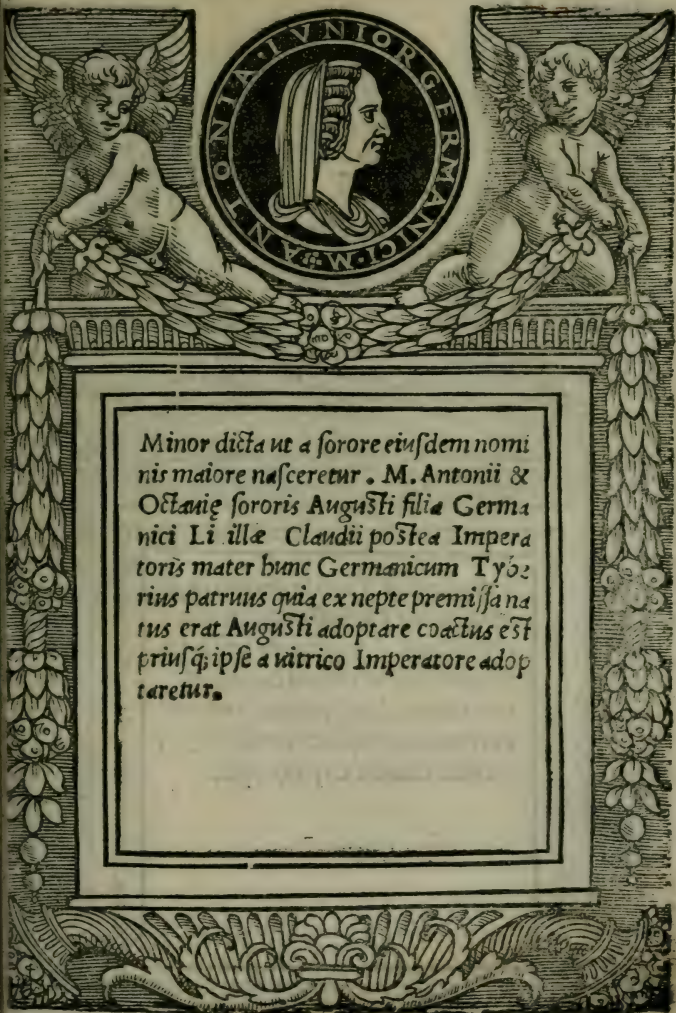 ANTONIA·IVNIOR GERMANICI·M
Minor dicta ut a sorore eiusdem nomi
nis maiore nasceretur. M. Antonii &
Octauię sororis Augusti filia Germa
nici Li illæ Claudii postea Impera
toris mater hunc Germanicum Tybe
rius patruus quia ex nepte premissa na
tus erat Augusti adoptare coactus est
priusq̃; ipse a uitrico Imperatore adop
taretur.